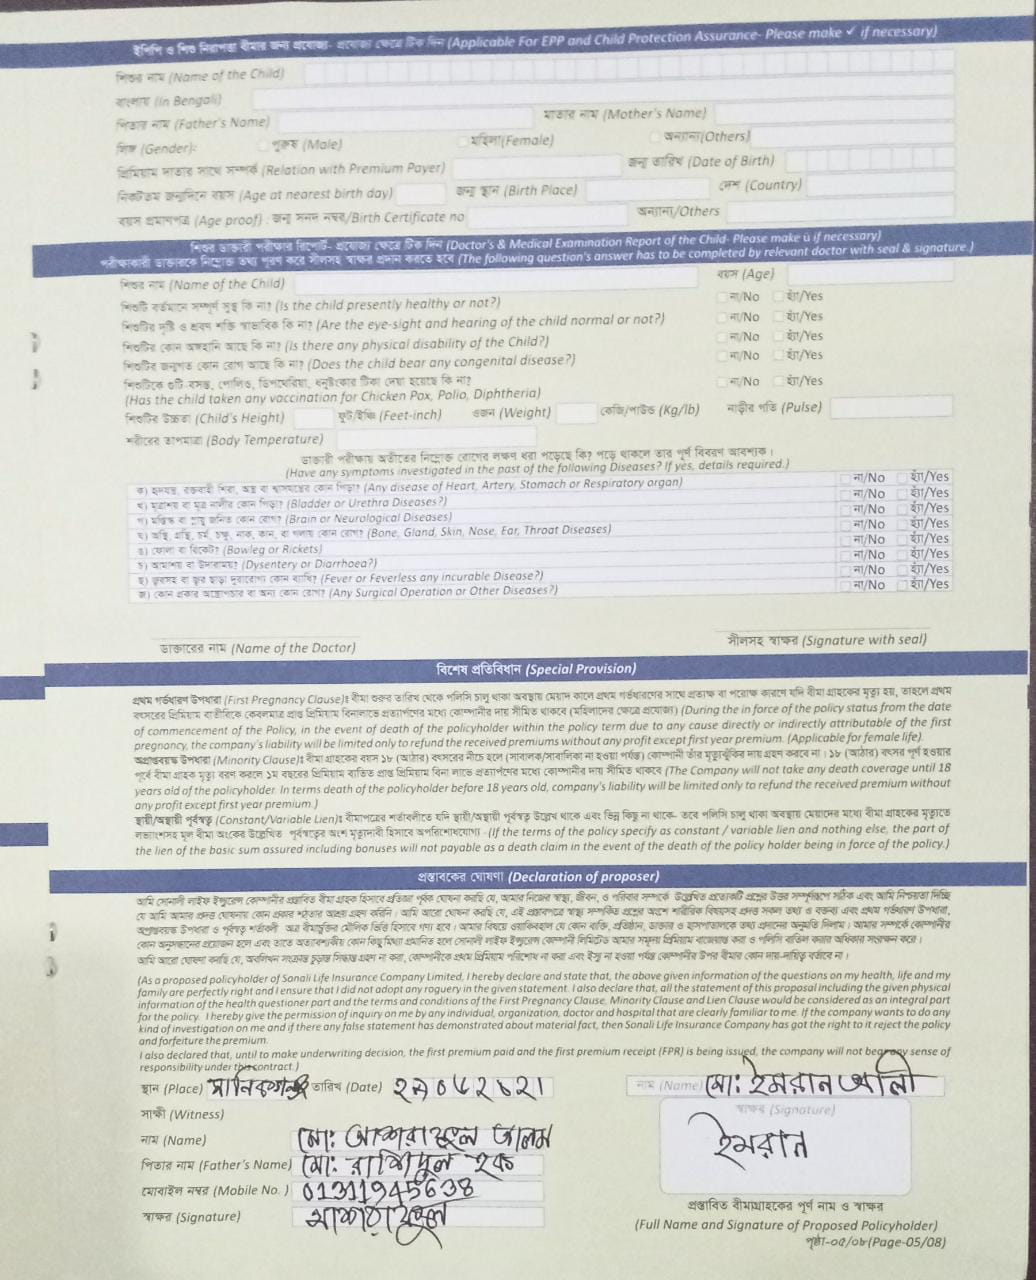 ইপিপি ও শিশু নিরাপত্তা বীমার জন্য প্রযোজ্য- প্রযোজ্য ক্ষেত্রে টিক দিন (Applicable For EPP and Child Protection Assurance- Please make ✓ if necessary)
শিশুর নাম (Name of the Child)
বাংলায় (In Bengali)
পিতার নাম (Father's Name) মাতার নাম (Mother's Name)
লিঙ্গ (Gender): পুরুষ (Male) মহিলা(Female) অন্যান্য(Others)
প্রিমিয়াম দাতার সাথে সম্পর্ক (Relation with Premium Payer) জন্ম তারিখ (Date of Birth)
নিকটতম জন্মদিনে বয়স (Age at nearest birth day) জন্ম স্থান (Birth Place) দেশ (Country)
বয়স প্রমাণপত্র (Age proof) : জন্ম সনদ নম্বর/Birth Certificate no অন্যান্য/Others
শিশুর ডাক্তারী পরীক্ষার রিপোর্ট- প্রযোজ্য ক্ষেত্রে টিক দিন (Doctor's & Medical Examination Report of the Child- Please make ü if necessary)
পরীক্ষাকারী ডাক্তারকে নিম্নোক্ত তথ্য পূরণ করে সীলসহ স্বাক্ষর প্রদান করতে হবে (The following question's answer has to be completed by relevant doctor with seal & signature.)
শিশুর নাম (Name of the Child) বয়স (Age)
শিশুটি বর্তমানে সম্পূর্ণ সুস্থ কি না? (Is the child presently healthy or not?) না/No হ্যাঁ/Yes
শিশুটির দৃষ্টি ও শ্রবণ শক্তি স্বাভাবিক কি না? (Are the eye-sight and hearing of the child normal or not?) না/No হ্যাঁ/Yes
শিশুটির কোন অঙ্গহানি আছে কি না? (Is there any physical disability of the Child?) না/No হ্যাঁ/Yes
শিশুটির জন্মগত কোন রোগ আছে কি না? (Does the child bear any congenital disease?) না/No হ্যাঁ/Yes
শিশুটিকে গুটি বসন্ত, পোলিও, ডিপথেরিয়া, ধনুষ্টংকার টিকা দেয়া হয়েছে কি না? না/No হ্যাঁ/Yes
(Has the child taken any vaccination for Chicken Pox, Polio, Diphtheria)
শিশুটির উচ্চতা (Child's Height) ফুট/ইঞ্চি (Feet-inch) ওজন (Weight) কেজি/পাউন্ড (Kg/lb) নাড়ীর গতি (Pulse)
শরীরের তাপমাত্রা (Body Temperature)
ডাক্তারী পরীক্ষায় অতীতের নিম্নোক্ত রোগের লক্ষণ ধরা পড়েছে কি? পড়ে থাকলে তার পূর্ণ বিবরণ আবশ্যক।
(Have any symptoms investigated in the past of the following Diseases? If yes, details required.)
ক) হৃদযন্ত্র, রক্তবাহী শিরা, অন্ত্র বা শ্বাসযন্ত্রের কোন পীড়া? (Any disease of Heart, Artery, Stomach or Respiratory organ) না/No হ্যাঁ/Yes
খ) মূত্রাশয় বা মূত্র নালীর কোন পীড়া? (Bladder or Urethra Diseases?) না/No হ্যাঁ/Yes
গ) মস্তিষ্ক বা স্নায়ু জনিত কোন রোগ? (Brain or Neurological Diseases) না/No হ্যাঁ/Yes
ঘ) অস্থি, গ্রন্থি, চর্ম, চক্ষু, নাক, কান, বা গলায় কোন রোগ? (Bone, Gland, Skin, Nose, Ear, Throat Diseases) না/No হ্যাঁ/Yes
ঙ) ফোলা বা রিকেট? (Bowleg or Rickets) না/No হ্যাঁ/Yes
চ) আমাশয় বা উদরাময়? (Dysentery or Diarrhoea?) না/No হ্যাঁ/Yes
ছ) জ্বরসহ বা জ্বর ছাড়া দুরারোগ্য কোন ব্যাধি? (Fever or Feverless any incurable Disease?) না/No হ্যাঁ/Yes
জ) কোন প্রকার অস্ত্রোপচার বা অন্য কোন রোগ? (Any Surgical Operation or Other Diseases?) না/No হ্যাঁ/Yes
ডাক্তারের নাম (Name of the Doctor) সীলসহ স্বাক্ষর (Signature with seal)
বিশেষ প্রতিবিধান (Special Provision)
প্রথম গর্ভধারণ উপধারা (First Pregnancy Clause)ঃ বীমা শুরুর তারিখ থেকে পলিসি চালু থাকা অবস্থায় মেয়াদ কালে প্রথম গর্ভধারণের সাথে প্রত্যক্ষ বা পরোক্ষ কারণে যদি বীমা গ্রাহকের মৃত্যু হয়, তাহলে প্রথম
বৎসরের প্রিমিয়াম ব্যতীরিকে কেবলমাত্র প্রাপ্ত প্রিমিয়াম বিনালাভে প্রত্যার্পণের মধ্যে কোম্পানীর দায় সীমিত থাকবে (মহিলাদের ক্ষেত্রে প্রযোজ্য) (During the in force of the policy status from the date
of commencement of the Policy, in the event of death of the policyholder within the policy term due to any cause directly or indirectly attributable of the first
pregnancy, the company's liability will be limited only to refund the received premiums without any profit except first year premium. (Applicable for female life).
অপ্রাপ্তবয়স্ক উপধারা (Minority Clause)ঃ বীমা গ্রাহকের বয়স ১৮ (আঠার) বৎসরের নীচে হলে (সাবালক/সাবালিকা না হওয়া পর্যন্ত) কোম্পানী তাঁর মৃত্যুঝুঁকির দায় গ্রহণ করবে না। ১৮ (আঠার) বৎসর পূর্ণ হওয়ার
পূর্বে বীমা গ্রাহক মৃত্যু বরণ করলে ১ম বছরের প্রিমিয়াম ব্যতিত প্রাপ্ত প্রিমিয়াম বিনা লাভে প্রত্যার্পণের মধ্যে কোম্পানীর দায় সীমিত থাকবে (The Company will not take any death coverage until 18
years old of the policyholder. In terms death of the policyholder before 18 years old, company's liability will be limited only to refund the received premium without
any profit except first year premium.)
স্থায়ী/অস্থায়ী পূর্বস্বত্ব (Constant/Variable Lien)ঃ বীমাপত্রের শর্তাবলীতে যদি স্থায়ী/অস্থায়ী পূর্বস্বত্ব উল্লেখ থাকে এবং ভিন্ন কিছু না থাকে- তবে পলিসি চালু থাকা অবস্থায় মেয়াদের মধ্যে বীমা গ্রাহকের মৃত্যুতে
লভ্যাংশসহ মূল বীমা অংকের উল্লেখিত পূর্বস্বত্বের অংশ মৃত্যুদাবী হিসাবে অপরিশোধযোগ্য - (If the terms of the policy specify as constant / variable lien and nothing else, the part of
the lien of the basic sum assured including bonuses will not payable as a death claim in the event of the death of the policy holder being in force of the policy.)
প্রস্তাবকের ঘোষণা (Declaration of proposer)
আমি সোনালী লাইফ ইন্স্যুরেন্স কোম্পানীর প্রস্তাবিত বীমা গ্রাহক হিসেবে প্রতিজ্ঞা পূর্বক ঘোষণা করছি যে, আমার নিজের স্বাস্থ্য, জীবন, ও পরিবার সম্পর্কে উল্লেখিত প্রত্যেকটি প্রশ্নের উত্তর সম্পূর্ণরূপে সঠিক এবং আমি নিশ্চয়তা দিচ্ছি
যে আমি আমার প্রদত্ত ঘোষনায় কোন প্রকার শঠতার আশ্রয় গ্রহণ করিনি। আমি আরো ঘোষনা করছি যে, এই প্রস্তাবপত্রে স্বাস্থ্য সম্পর্কিত প্রশ্নের অংশে শারীরিক বিষয়সহ প্রদত্ত সকল তথ্য ও বক্তব্য এবং প্রথম গর্ভধারণ উপধারা,
অপ্রাপ্তবয়স্ক উপধারা ও পূর্বস্বত্ব শর্তাবলী অত্র বীমাচুক্তির মৌলিক ভিত্তি হিসাবে গণ্য হবে। আমার বিষয়ে ওয়াকিবহাল যে কোন ব্যক্তি, প্রতিষ্ঠান, ডাক্তার ও হাসপাতালকে তথ্য প্রদানের অনুমতি দিলাম। আমার সম্পর্কে কোম্পানীর
কোন অনুসন্ধানের প্রয়োজন হলে এবং তাতে অত্যাবশ্যকীয় কোন কিছু মিথ্যা প্রমানিত হলে সোনালী লাইফ ইন্স্যুরেন্স কোম্পানী লিমিটেড আমার সমুদয় প্রিমিয়াম বাজেয়াপ্ত করা ও পলিসি বাতিল করার অধিকার সংরক্ষন করে।
আমি আরো ঘোষনা করছি যে, অবলিখন সংক্রান্ত চুড়ান্ত সিদ্ধান্ত গ্রহন না করা, কোম্পানীকে প্রথম প্রিমিয়াম পরিশোধ না করা এবং ইস্যু না হওয়া পর্যন্ত কোম্পানীর উপর বীমার কোন দায়-দায়িত্ব বর্তাবে না।
(As a proposed policyholder of Sonali Life Insurance Company Limited, I hereby declare and state that, the above given information of the questions on my health, life and my
family are perfectly right and I ensure that I did not adopt any roguery in the given statement. I also declare that, all the statement of this proposal including the given physical
information of the health questioner part and the terms and conditions of the First Pregnancy Clause, Minority Clause and Lien Clause would be considered as an integral part
for the policy. I hereby give the permission of inquiry on me by any individual, organization, doctor and hospital that are clearly familiar to me. If the company wants to do any
kind of investigation on me and if there any false statement has demonstrated about material fact, then Sonali Life Insurance Company has got the right to reject the policy
and forfeiture the premium.
I also declared that, until to make underwriting decision, the first premium paid and the first premium receipt (FPR) is being issued, the company will not bear any sense of
responsibility under this contract.)
স্থান (Place) মানিকগঞ্জ তারিখ (Date) ২৯০৫২০২১ নাম (Name) মো: ইমরান আলী
সাক্ষী (Witness) স্বাক্ষর (Signature)
নাম (Name) মো: আশরাফুল আলম ইমরান
পিতার নাম (Father's Name) মো: রাশিদুল হক
মোবাইল নম্বর (Mobile No. ) 01311945638
স্বাক্ষর (Signature) আশরাফুল
প্রস্তাবিত বীমাগ্রাহকের পূর্ণ নাম ও স্বাক্ষর
(Full Name and Signature of Proposed Policyholder)
পৃষ্ঠা-০৫/০৮(Page-05/08)